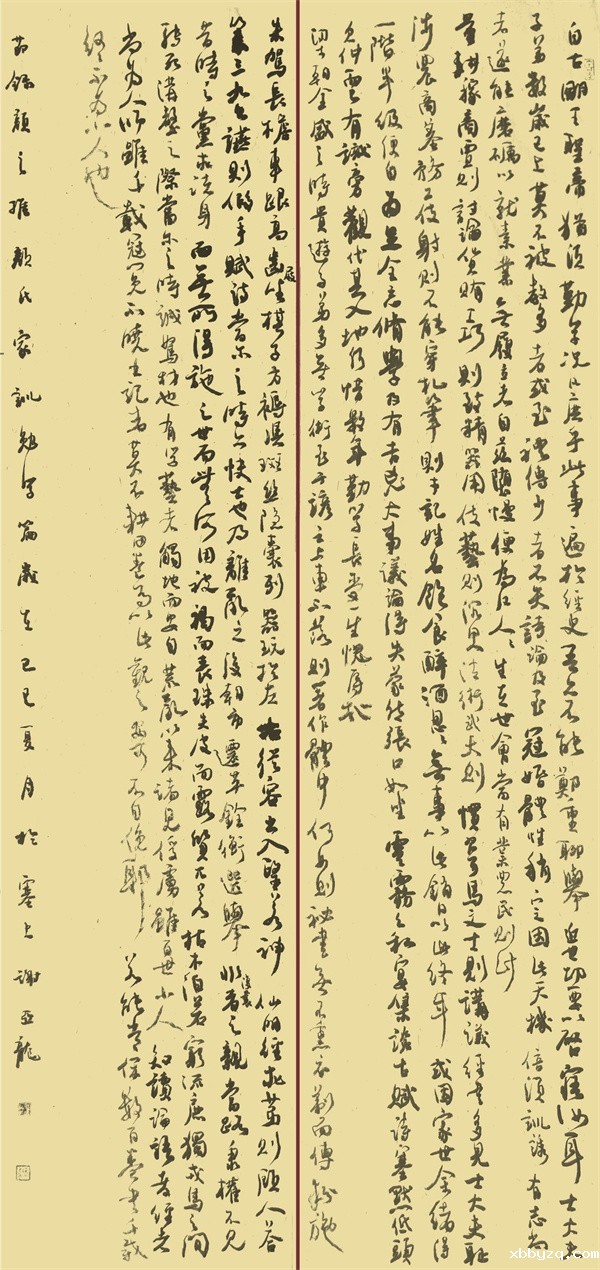 自古明王聖帝猶須勤學況凡庶乎此事遍於經史吾亦不能鄭重聊舉近世切要以啟寤汝耳士大夫
子弟數歲已上莫不被教多者或至禮傳少者不失詩論及至冠婚體性稍定因此天機倍須訓誘有志尚
者遂能磨礪以就素業無履立者自茲墮慢便為凡人人生在世會當有業農民則計
量耕稼商賈則討論貨賄工巧則致精器用伎藝則沉思法術武夫則慣習弓馬文士則講議經書多見士大夫恥
涉農商羞務工伎射則不能穿札筆則才記姓名飽食醉酒忽忽無事以此銷日以此終年或因家世餘緒得
一階半級便自為足全忘修學及有吉凶大事議論得失蒙然張口如坐雲霧公私宴集談古賦詩塞默低頭
欠伸而已有識旁觀代其入地何惜數年勤學長受一生愧辱哉
梁朝全盛之時貴遊子弟多無學術至於諺云上車不落則著作體中何如則秘書無不熏衣剃面傅粉施
朱駕長檐車跟高齒屐坐棋子方褥憑斑絲隱囊列器玩於左右從容出入望若神仙明經求第則顧人答
策三九公讌則假手賦詩當爾之時亦快士也及離亂之後朝市遷革銓衡選舉非復曩者之親當路秉權不見
昔時之黨求諸身而無所得施之世而無所用被褐而喪珠失皮而露質兀若枯木泊若窮流鹿獨戎馬之間
轉死溝壑之際當爾之時誠駑材也有學藝者觸地而安自荒亂以來諸見俘虜雖百世小人知讀論語孝經者
尚為人師雖千載冠冕不曉書記者莫不耕田養馬以此觀之安可不自勉耶若能常保數百卷書千載
終不為小人也
節錄顏之推顏氏家訓勉學篇歲在己巳夏月於塞上謝亞龍
xbbyzq.com